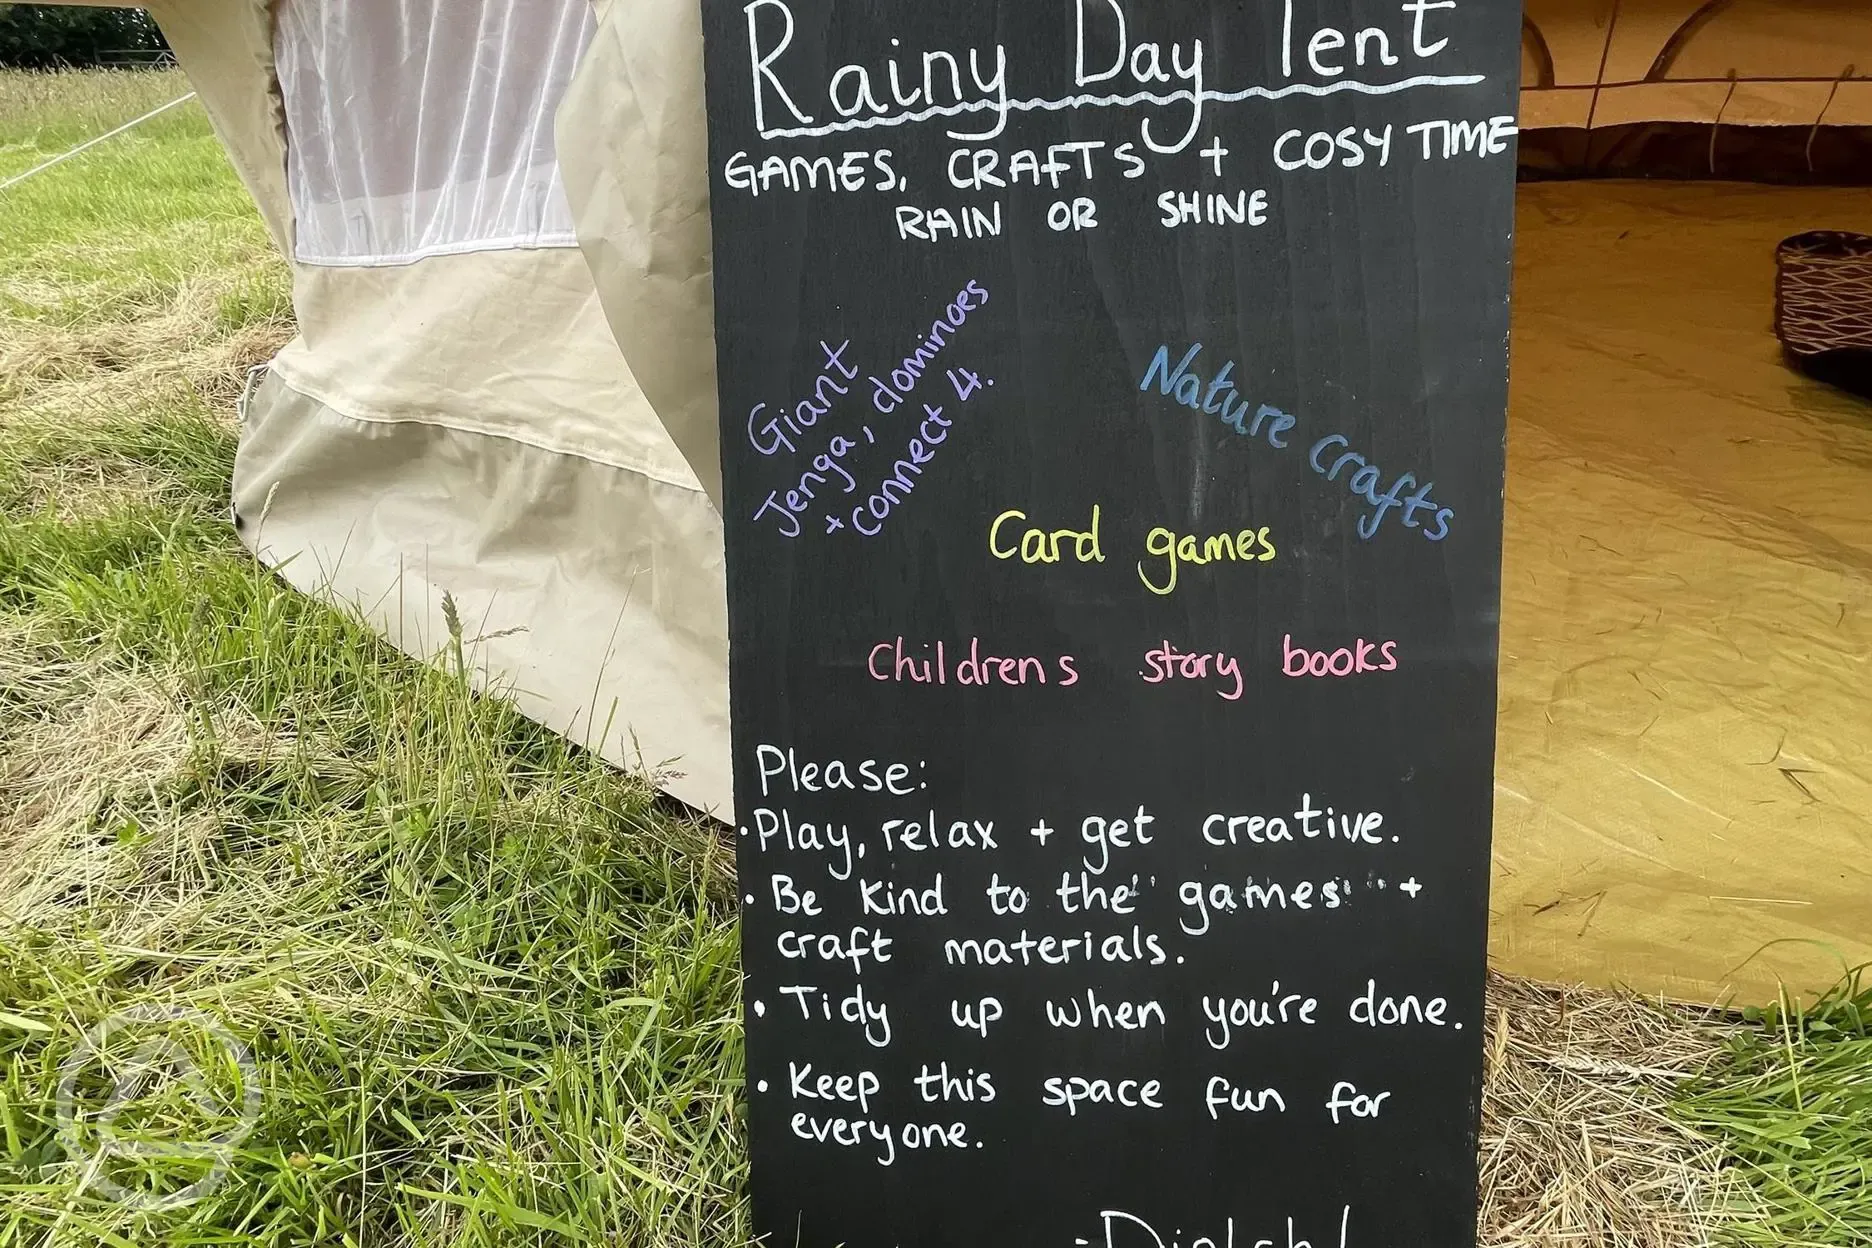 Rainy Day Tent
GAMES, CRAFTS + COSY TIME
RAIN OR SHINE
Giant
Jenga, dominoes
+ connect 4.
Nature crafts
Card games
Childrens story books
Please:
• Play, relax + get creative.
• Be kind to the games +
craft materials.
• Tidy up when you're done.
• Keep this space fun for
everyone.